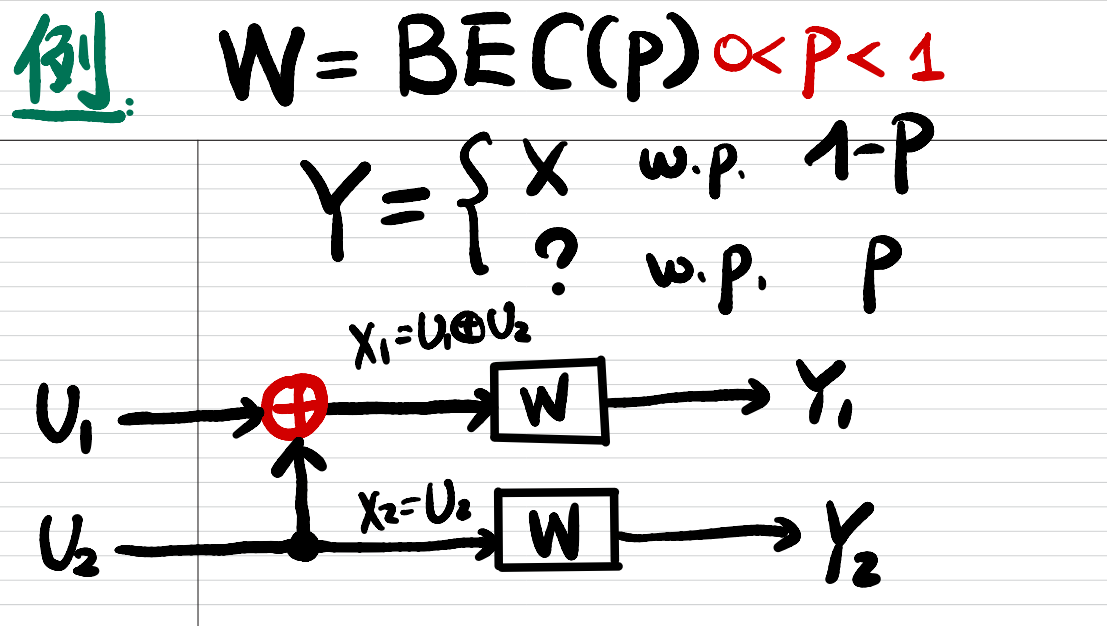 例: W = BEC(p) 0<p<1
Y = { X w.p. 1-p
? w.p. p
X₁=U₁⊕U₂
U₁ ⊕ W Y₁
X₂=U₂
U₂ W Y₂